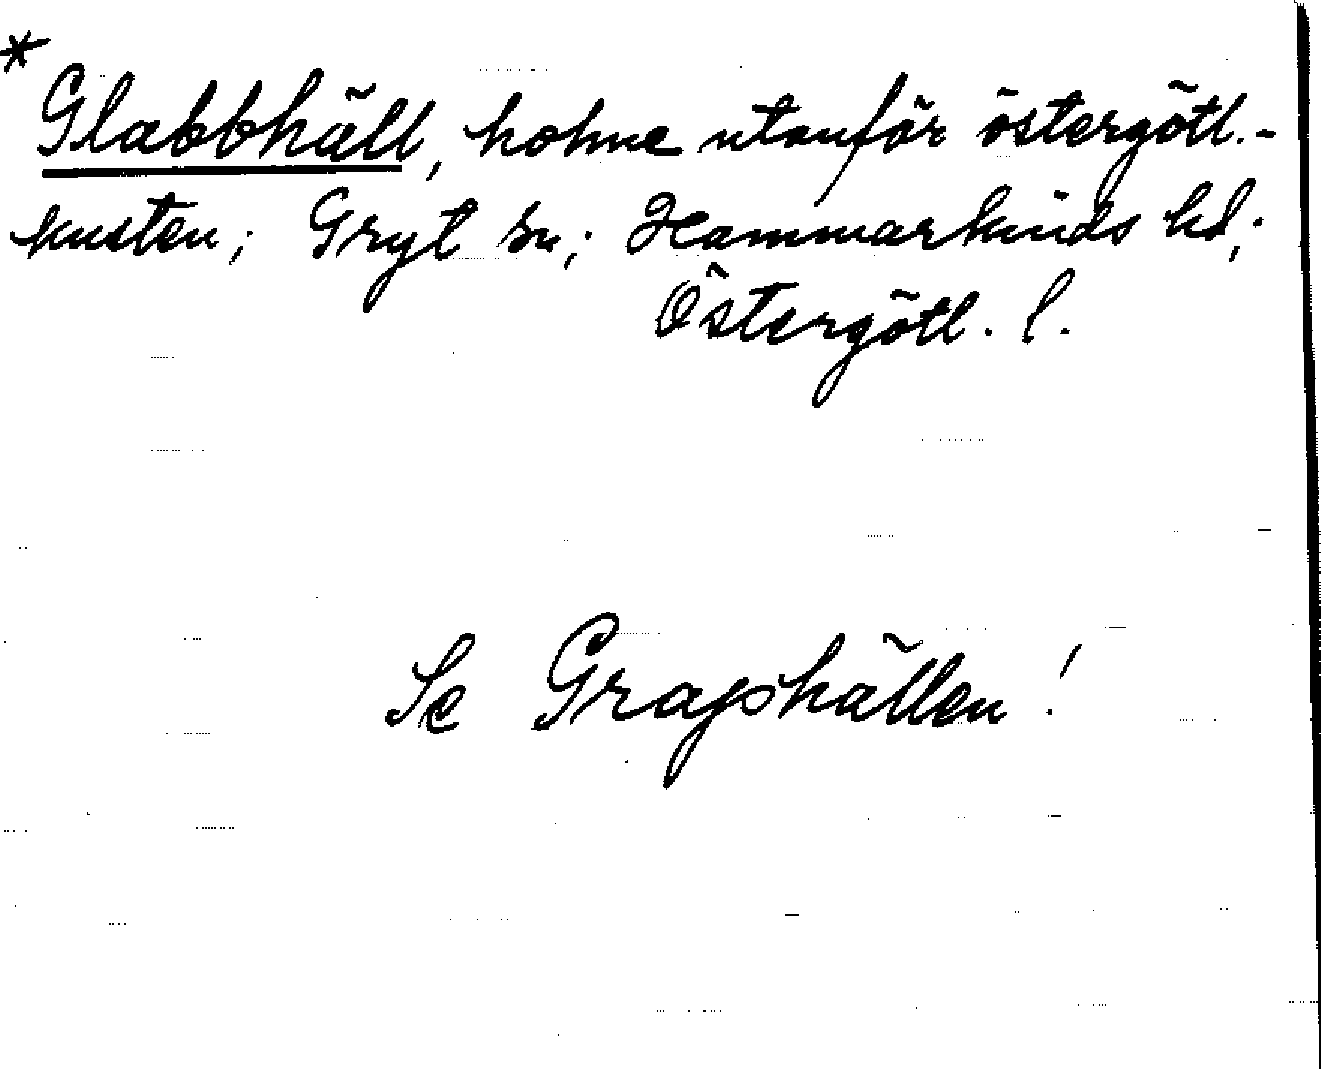 * Glabbhäll, holme utanför östergötl.-
kusten; Gryt sn; Hammarkinds hd;
Östergötl. l.
Se Gragshällen!